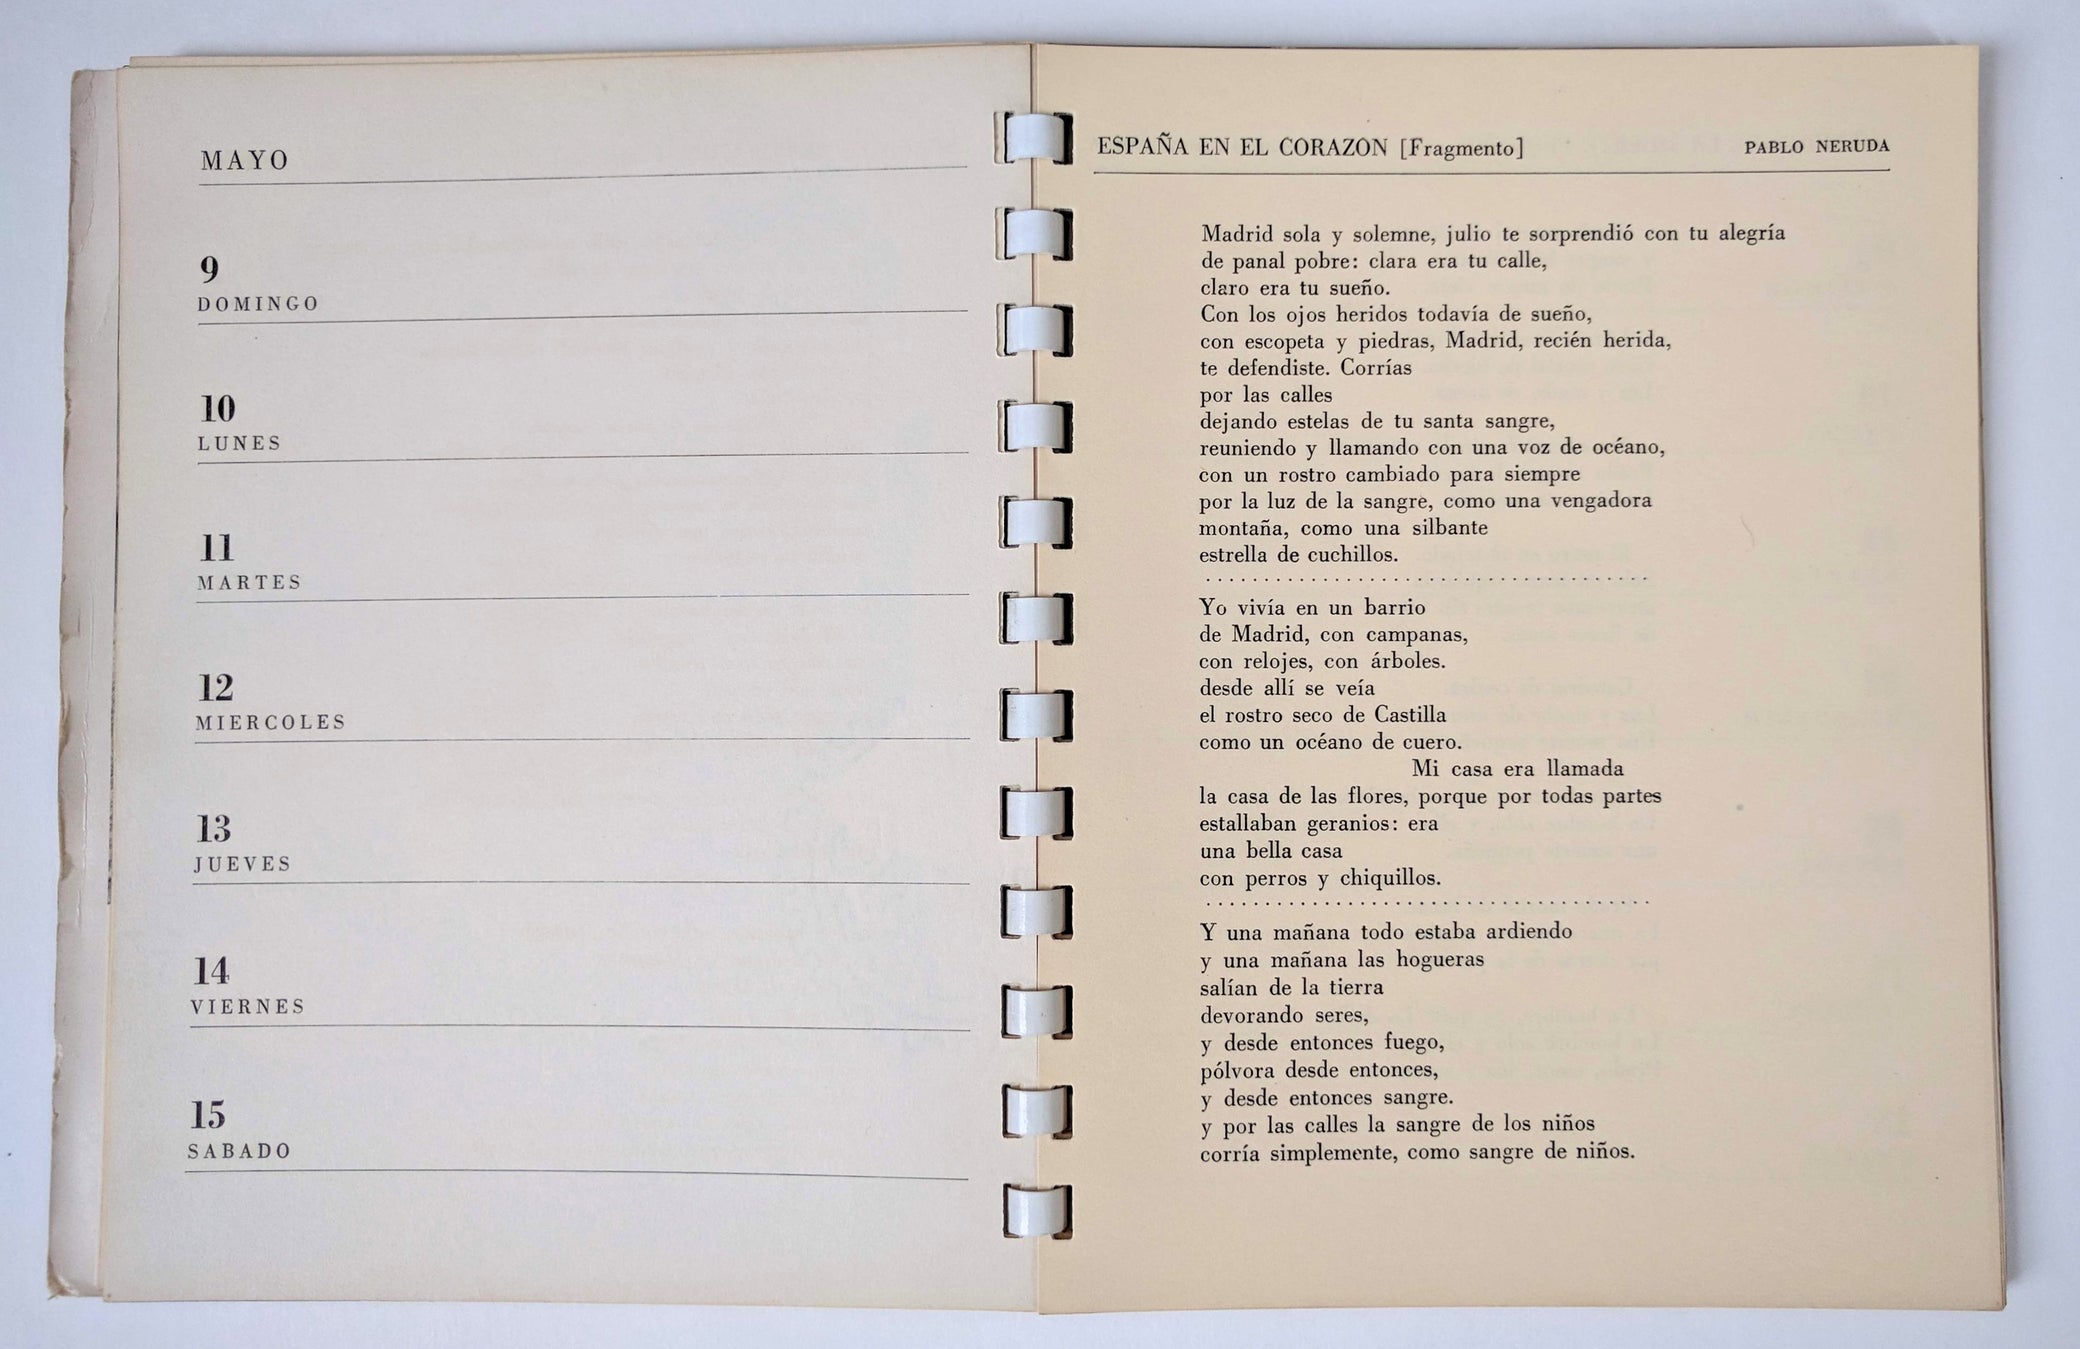 MAYO
9
DOMINGO
10
LUNES
11
MARTES
12
MIERCOLES
13
JUEVES
14
VIERNES
15
SABADO
ESPAÑA EN EL CORAZON [Fragmento] PABLO NERUDA
Madrid sola y solemne, julio te sorprendió con tu alegría
de panal pobre: clara era tu calle,
claro era tu sueño.
Con los ojos heridos todavía de sueño,
con escopeta y piedras, Madrid, recién herida,
te defendiste. Corrías
por las calles
dejando estelas de tu santa sangre,
reuniendo y llamando con una voz de océano,
con un rostro cambiado para siempre
por la luz de la sangre, como una vengadora
montaña, como una silbante
estrella de cuchillos.
. . . . . . . . . . . . . . . . . . . . . . . . . . . . . . . . . . . . . .
Yo vivía en un barrio
de Madrid, con campanas,
con relojes, con árboles.
desde allí se veía
el rostro seco de Castilla
como un océano de cuero.
Mi casa era llamada
la casa de las flores, porque por todas partes
estallaban geranios: era
una bella casa
con perros y chiquillos.
. . . . . . . . . . . . . . . . . . . . . . . . . . . . . . . . . . . . . .
Y una mañana todo estaba ardiendo
y una mañana las hogueras
salían de la tierra
devorando seres,
y desde entonces fuego,
pólvora desde entonces,
y desde entonces sangre.
y por las calles la sangre de los niños
corría simplemente, como sangre de niños.